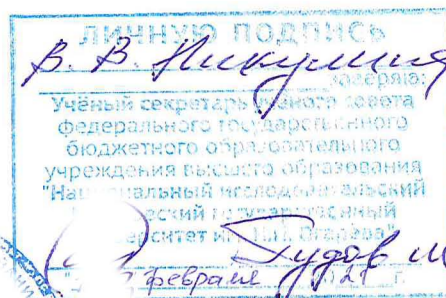 ЛИЧНУЮ ПОДПИСЬ
В. В. Никулина
заверяю:
Учёный секретарь Учёного совета
федерального государственного
бюджетного образовательного
учреждения высшего образования
"Национальный исследовательский
государственный
университет им. Н.П. Огарёва"
Гудов
февраля 20 г.